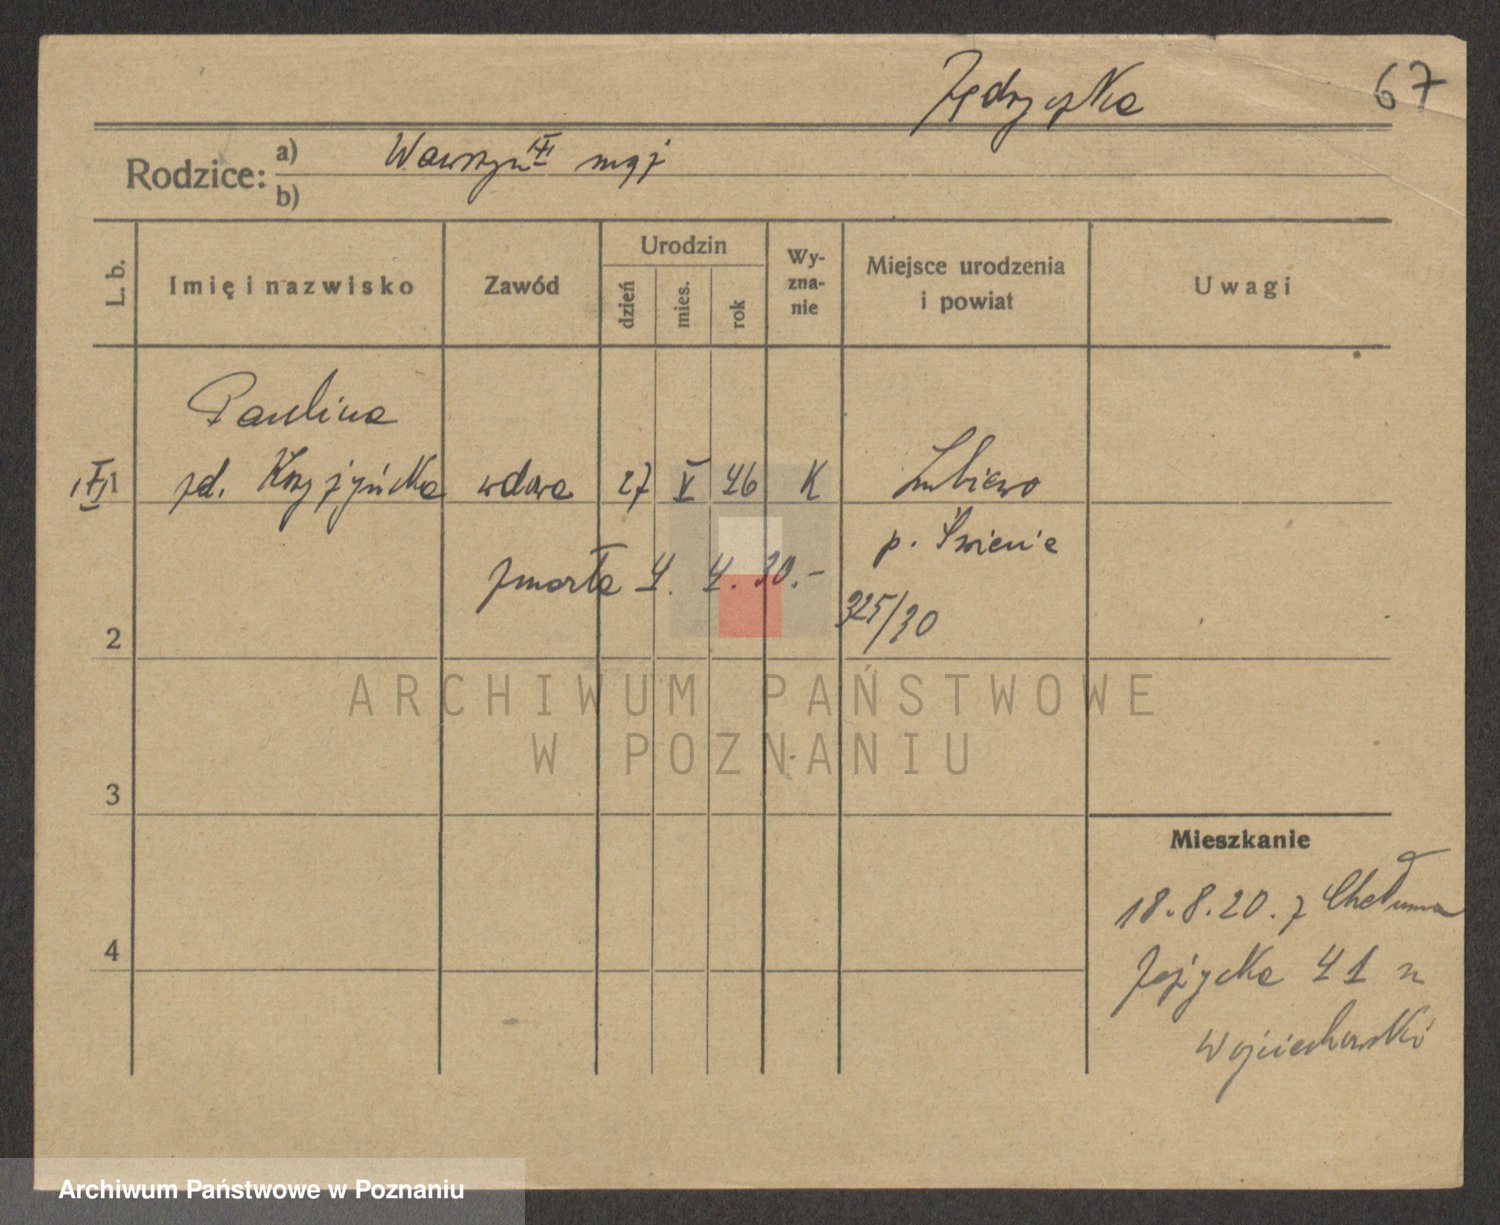 Jędryczka 67
Rodzice: a) Wawrzyn mąż
b)
L. b. Imię i nazwisko Zawód Urodzin dzień mies. rok Wy-zna-nie Miejsce urodzenia i powiat Uwagi
Paulina
1 zd. Krzyżyńska wdowa 27 V 46 K Lubiewo
p. Świecie
zmarła 4. 4. 30.-
325/30
2
ARCHIWUM PAŃSTWOWE
W POZNANIU
3
Mieszkanie
18.8.20. z Chełmna
4
Jeżycka 41 u
Wojciechowski
Archiwum Państwowe w Poznaniu